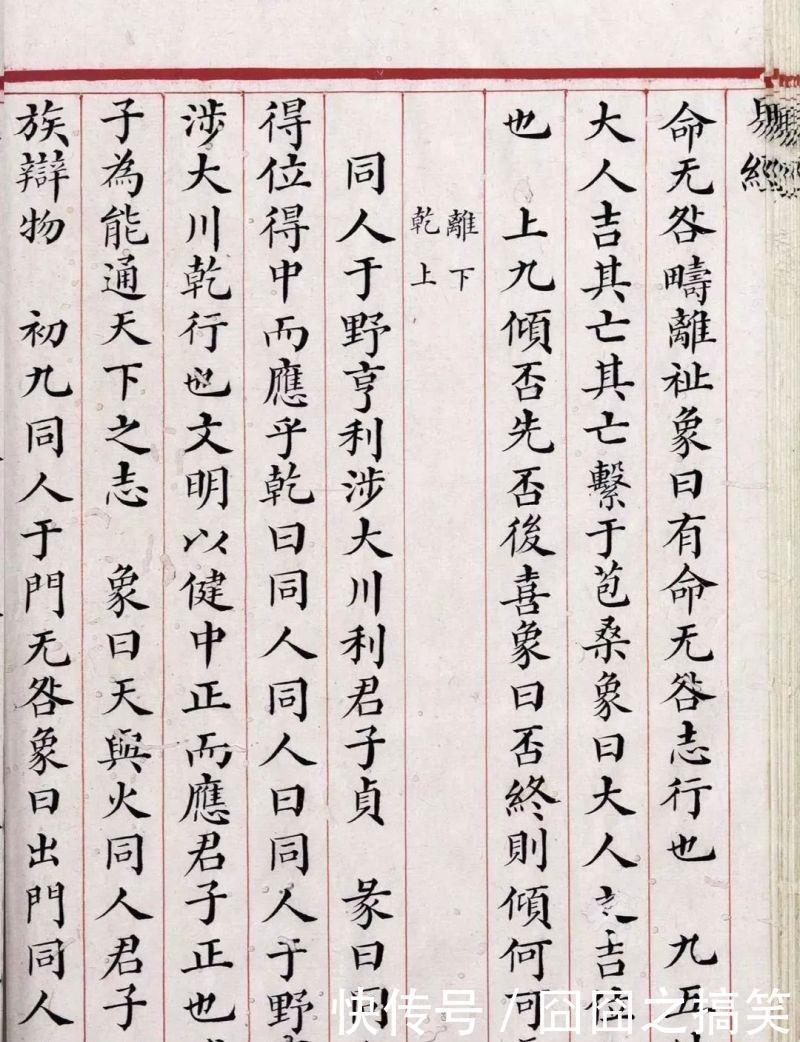 易經
命无咎疇離祉象曰有命无咎志行也　九五
大人吉其亡其亡繫于苞桑象曰大人之吉位
也　上九傾否先否後喜象曰否終則傾何可
離下
乾上
同人于野亨利涉大川利君子貞　彖曰同
得位得中而應乎乾曰同人同人曰同人于野
涉大川乾行也文明以健中正而應君子正也
子為能通天下之志　象曰天與火同人君子
族辯物　初九同人于門无咎象曰出門同人
快传号 / 囧囧之搞笑